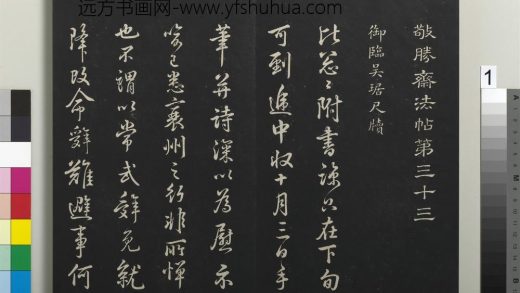 远方书画网-www.yfshuhua.com
敬勝齋法帖第三十三
御臨吴琚尺牘
比忽〻附書諒只在下旬
可到遞中收十月三日手
筆并詩深以為慰示
喻已悉襄州之行非所憚
也不謂以常式辭免就
降改命辭難避事何
1